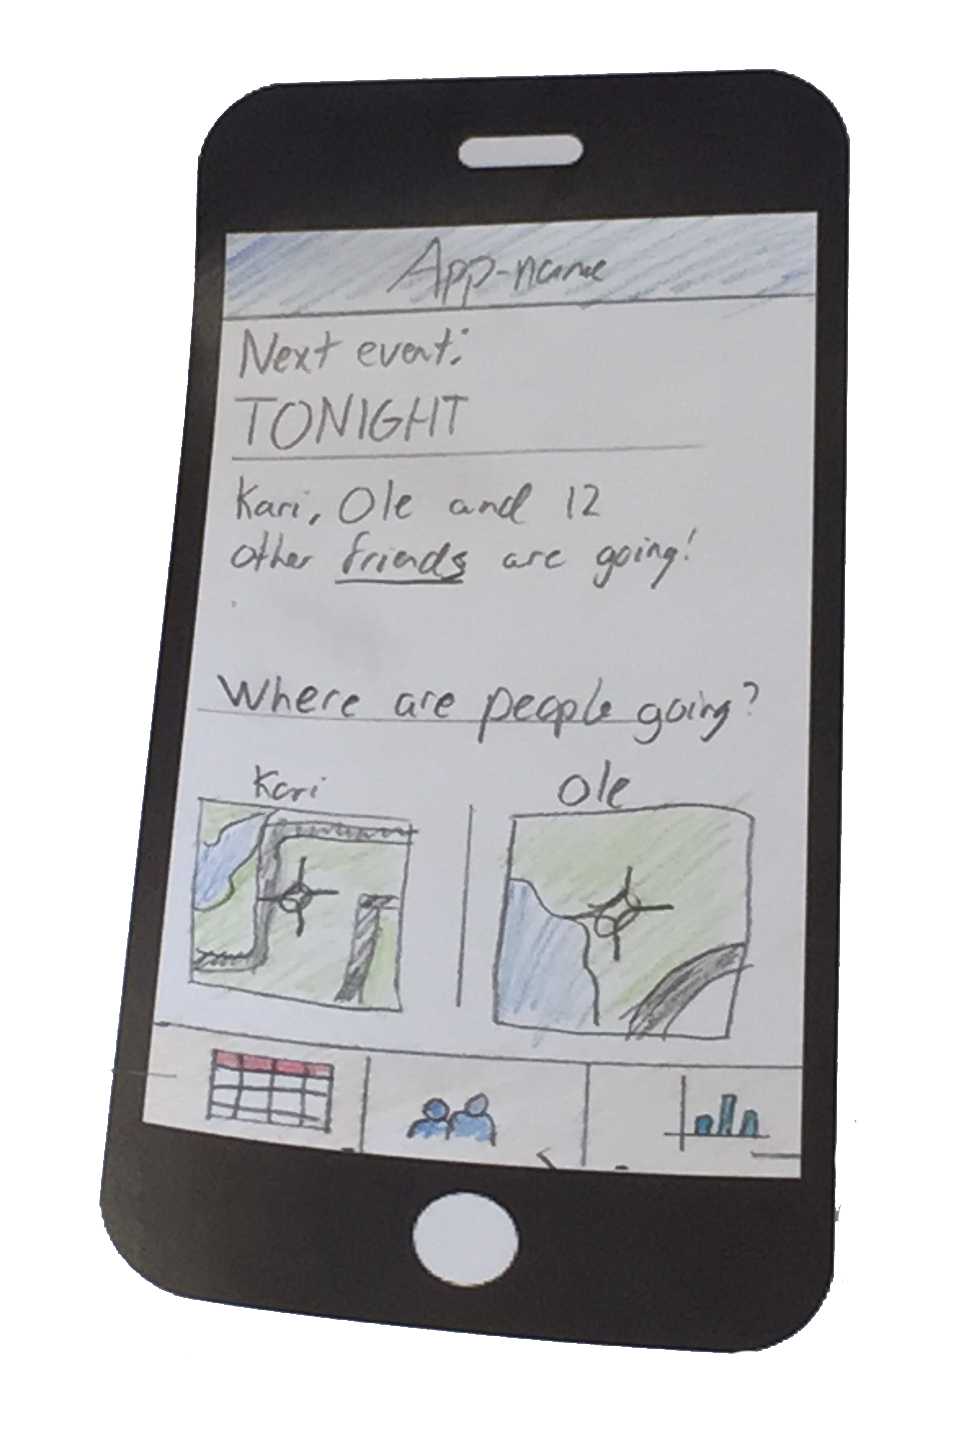 App-name
Next event:
TONIGHT
Kari, Ole and 12
other friends are going!
Where are people going?
Kari
Ole